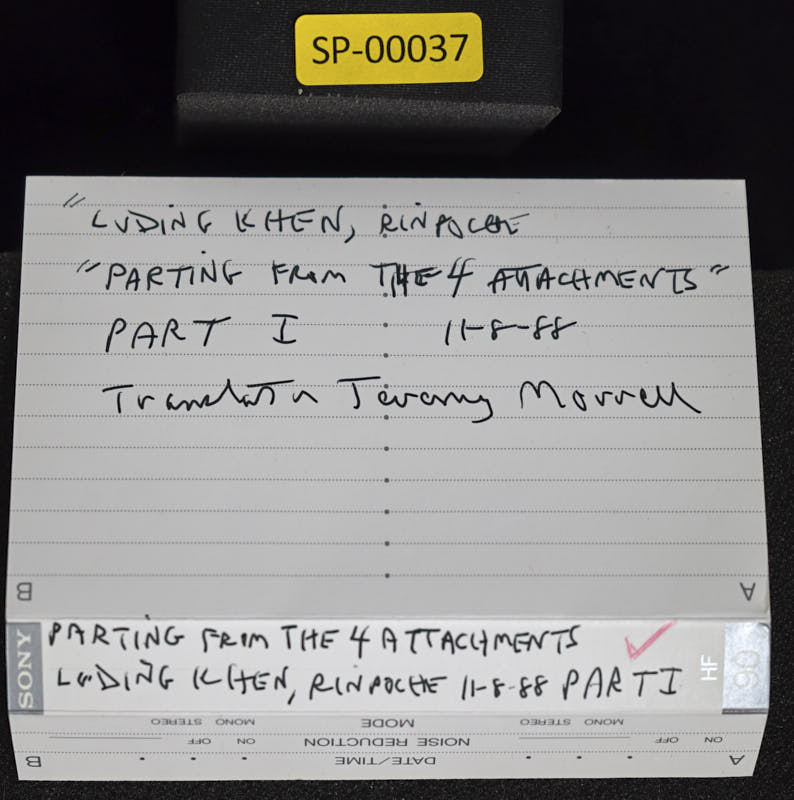 SP-00037
"LUDING KHEN, RINPOCHE
"PARTING FROM THE 4 ATTACHMENTS"
PART I 11-8-88
Translator Jeremy Morrell
B A
SONY PARTING FROM THE 4 ATTACHMENTS
LUDING KHEN, RINPOCHE 11-8-88 PART I HF 90
A DATE/TIME B
ON OFF NOISE REDUCTION ON OFF
MONO STEREO MODE MONO STEREO